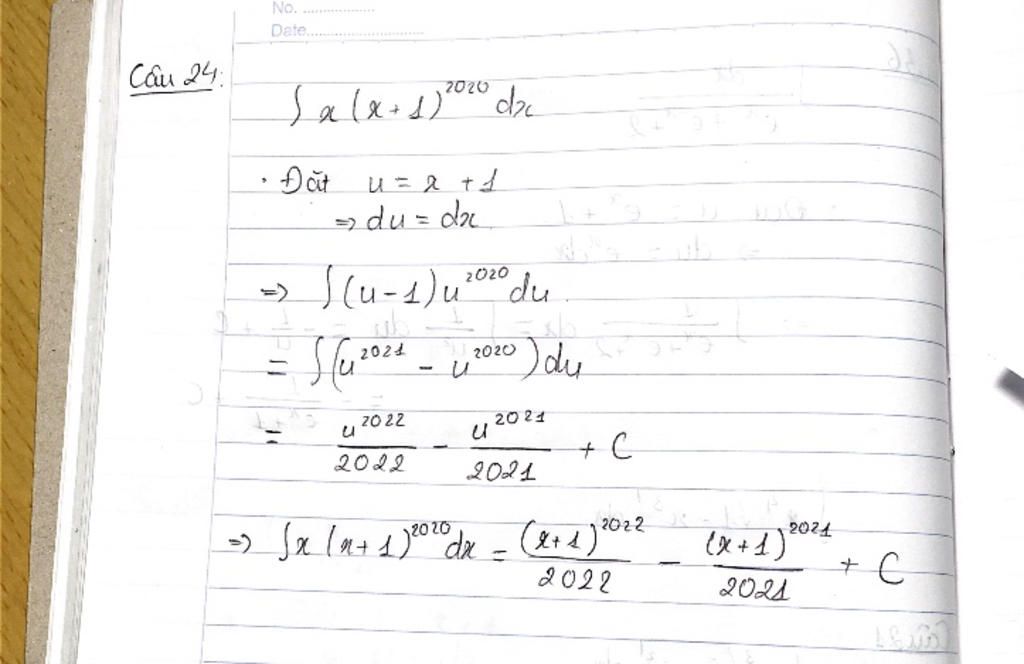 No. ..................
Date..............................
Câu 24:
∫ x (x + 1)^2020 dx
· Đặt u = x + 1
⇒ du = dx
⇒ ∫ (u - 1) u^2020 du
= ∫ (u^2021 - u^2020) du
= u^2022/2022 - u^2021/2021 + C
⇒ ∫ x (x + 1)^2020 dx = (x + 1)^2022/2022 - (x + 1)^2021/2021 + C